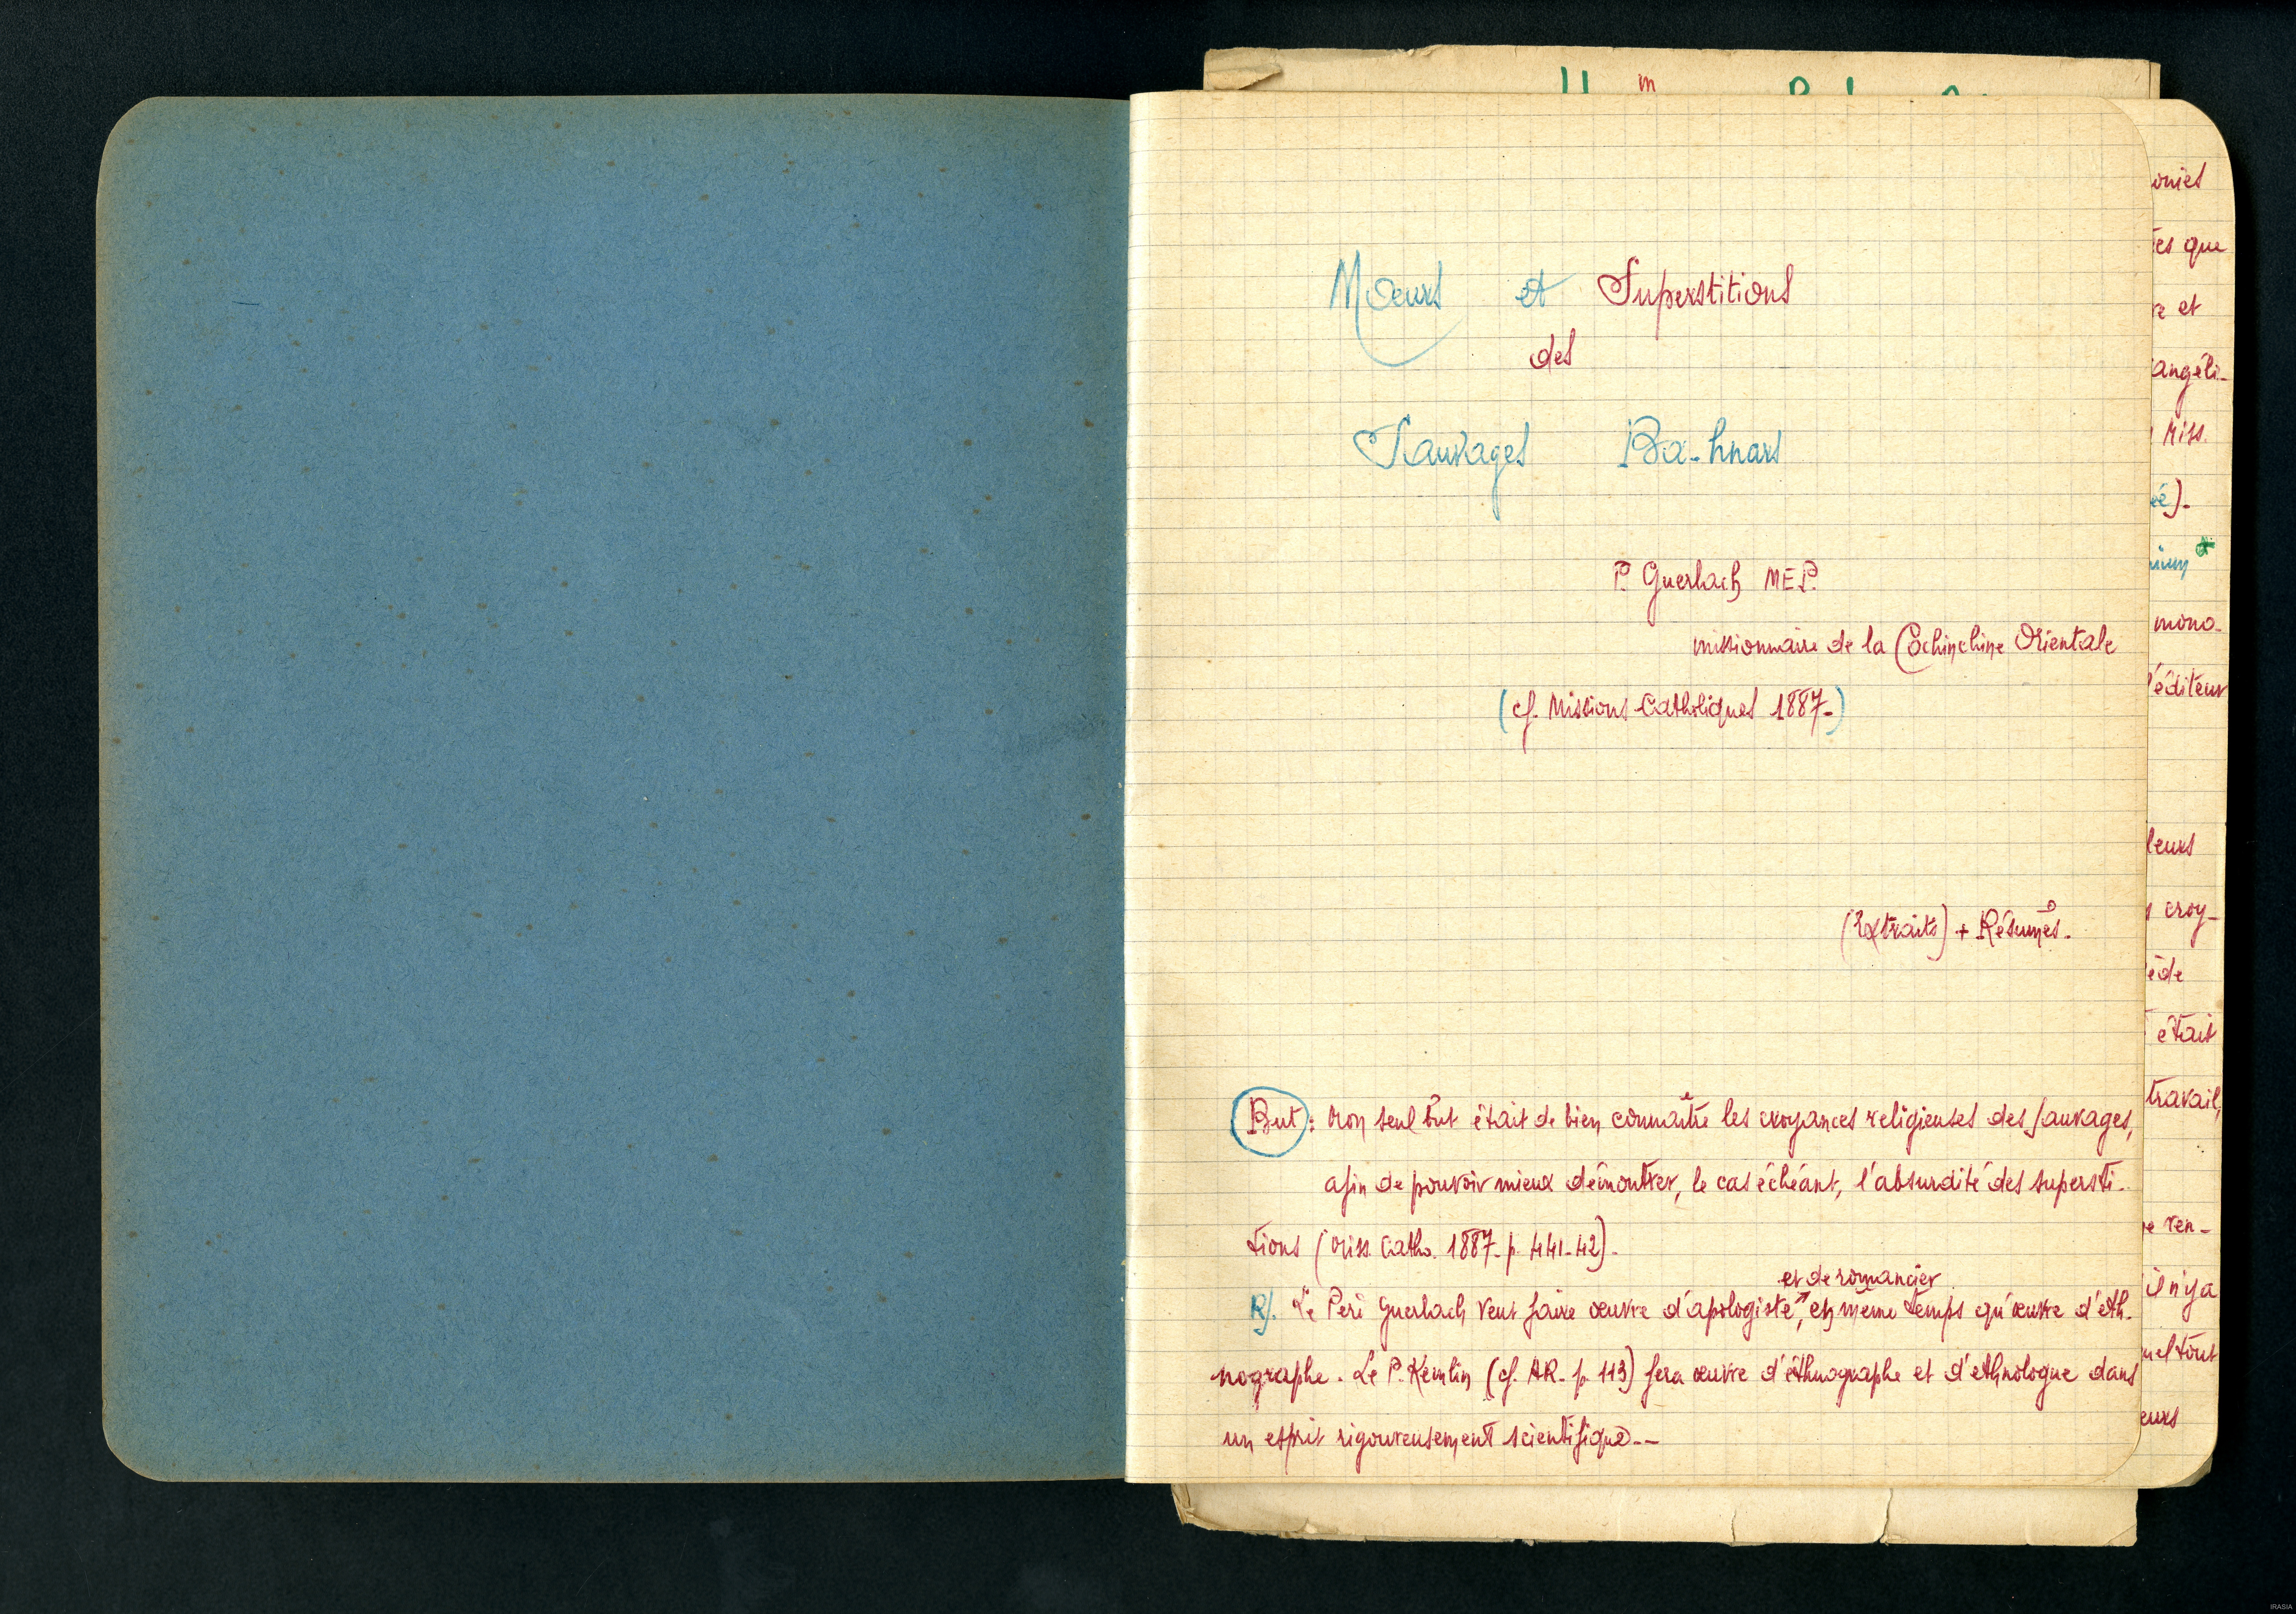 Mœurs et Superstitions
des
Sauvages Ba-hnars
P. Guerlach MEP.
missionnaire de la Cochinchine Orientale
(cf. Missions Catholiques 1887-)
(Extraits) + Résumés.
But : Mon seul but était de bien connaître les croyances religieuses des sauvages,
afin de pouvoir mieux démontrer, le cas échéant, l'absurdité des supersti-
tions (Miss. Catho. 1887- p. 441-42)-
et de romancier
R/. Le Père Guerlach veut faire œuvre d'apologiste, en même temps qu'œuvre d'eth-
nographe. Le P. Kemlin (cf. AR. p. 113) fera œuvre d'éthnographe et d'ethnologue dans
un esprit rigoureusement scientifique--
onies
tes que
re et
angéli-
Miss.
éé)-
nium
mono-
l'éditeur
leurs
croy-
ède
était
travail,
re ren-
il n'y a
uel tout
eurs
IRASIA